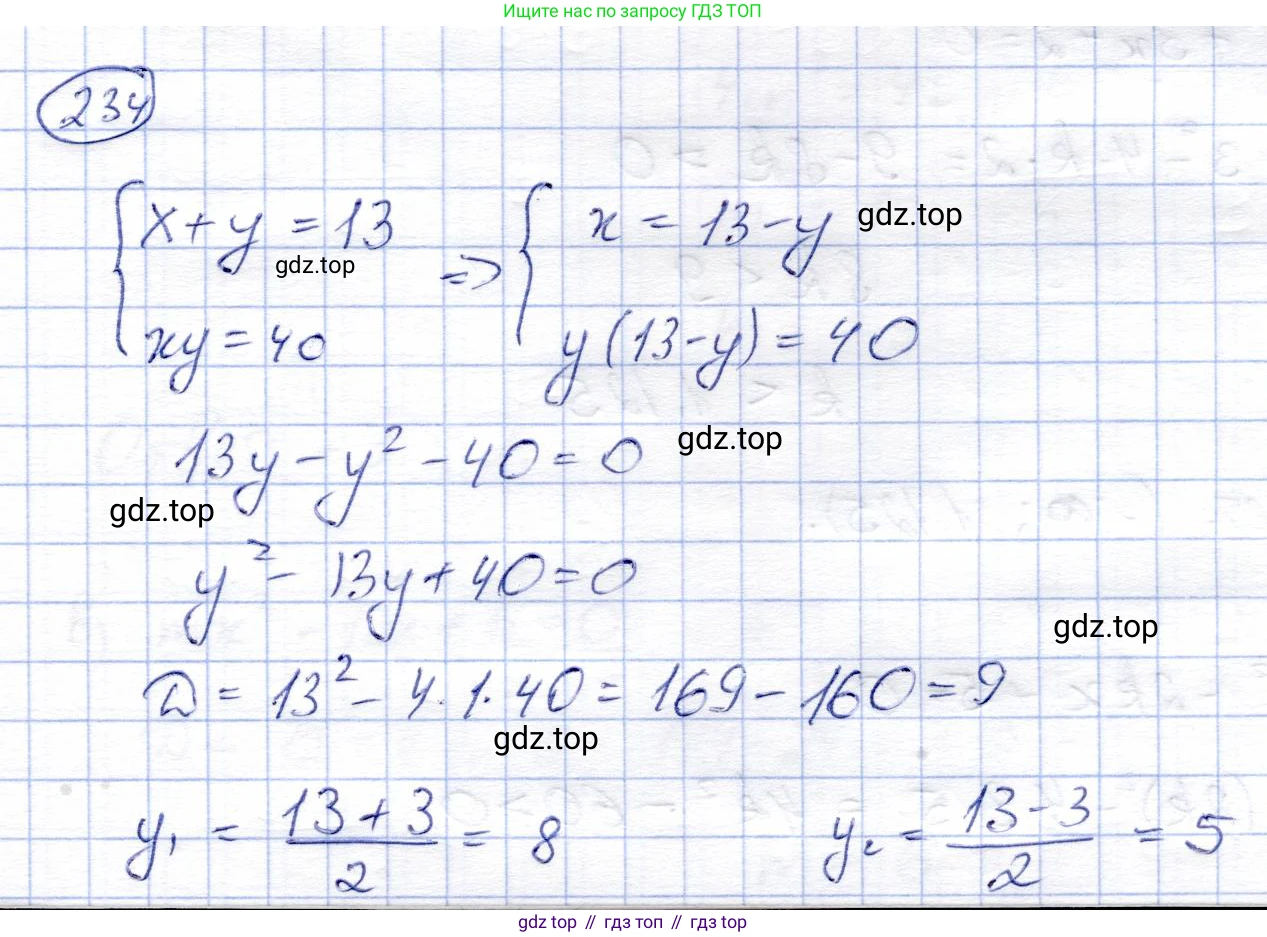 Ищите нас по запросу ГДЗ ТОП
234
{ x + y = 13 => { x = 13 - y gdz.top
gdz.top
xy = 40 y (13 - y) = 40
13y - y² - 40 = 0 gdz.top
gdz.top
y² - 13y + 40 = 0
gdz.top
D = 13² - 4 · 1 · 40 = 169 - 160 = 9
gdz.top
y₁ = (13 + 3)/2 = 8 y₂ = (13 - 3)/2 = 5
gdz top // гдз топ // gdz top